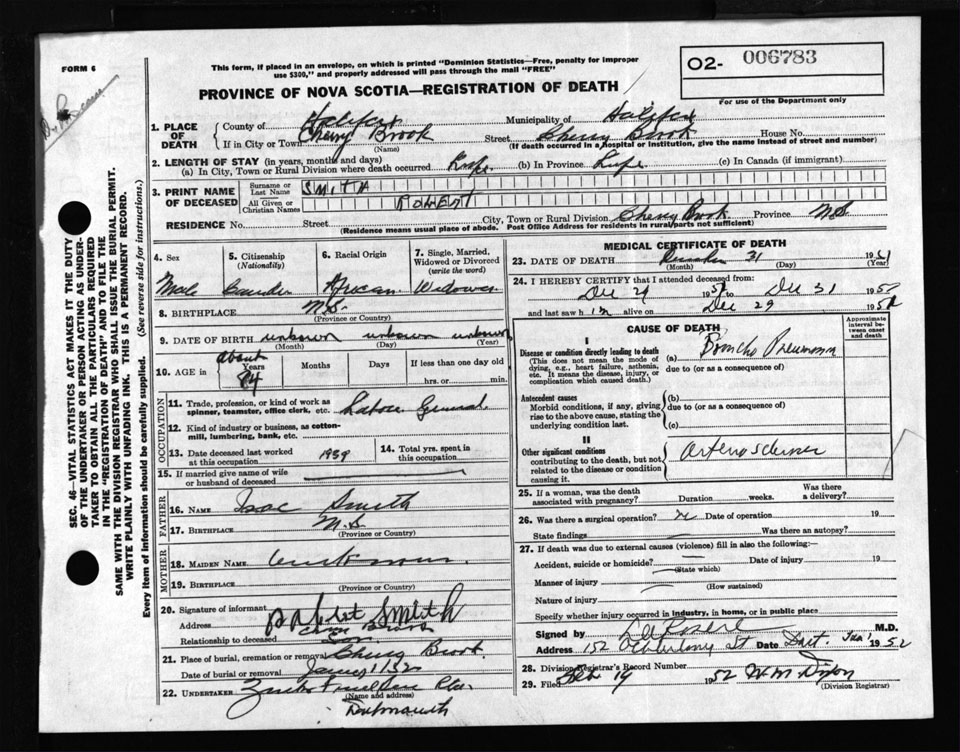 FORM 6
This form, if placed in an envelope, on which is printed "Dominion Statistics—Free, penalty for improper
use $300," and properly addressed will pass through the mail "FREE"
O2- 006783
For use of the Department only
PROVINCE OF NOVA SCOTIA—REGISTRATION OF DEATH
1. PLACE OF DEATH
County of Halifax Municipality of Halifax
If in City or Town Cherry Brook (Name) Street Cherry Brook House No.
(If death occurred in a hospital or institution, give the name instead of street and number)
2. LENGTH OF STAY (in years, months and days)
(a) In City, Town or Rural Division where death occurred Life (b) In Province Life (c) In Canada (if immigrant)
3. PRINT NAME OF DECEASED
Surname or Last Name SMITH
All Given or Christian Names ROBERT
RESIDENCE No. Street City, Town or Rural Division Cherry Brook Province N.S.
(Residence means usual place of abode. Post Office Address for residents in rural parts not sufficient)
4. Sex Male
5. Citizenship (Nationality)
6. Racial Origin African
7. Single, Married, Widowed or Divorced (write the word) Widower
8. BIRTHPLACE N.S.
(Province or Country)
9. DATE OF BIRTH unknown unknown unknown
(Month) (Day) (Year)
10. AGE in about 84 Years Months Days If less than one day old hrs. or min.
OCCUPATION
11. Trade, profession, or kind of work as spinner, teamster, office clerk, etc. Labour General
12. Kind of industry or business, as cotton-mill, lumbering, bank, etc.
13. Date deceased last worked at this occupation 1939
14. Total yrs. spent in this occupation
15. If married give name of wife or husband of deceased
FATHER
16. NAME Isac Smith
17. BIRTHPLACE N.S.
(Province or Country)
MOTHER
18. MAIDEN NAME Unknown
19. BIRTHPLACE
(Province or Country)
20. Signature of informant Smith
Address Brook
Relationship to deceased Son
21. Place of burial, cremation or removal Cherry Brook
Date of burial or removal Jany 1/52
22. UNDERTAKER
(Name and address)
Dartmouth
MEDICAL CERTIFICATE OF DEATH
23. DATE OF DEATH 31 1951
(Month) (Day) (Year)
24. I HEREBY CERTIFY that I attended deceased from:
Dec 1951 to Dec 31 195
and last saw him alive on Dec 29 195
CAUSE OF DEATH
Approximate interval between onset and death
I
Disease or condition directly leading to death
(This does not mean the mode of dying, e.g., heart failure, asthenia, etc. It means the disease, injury, or complication which caused death.)
(a) Broncho Pneumonia
due to (or as a consequence of)
Antecedent causes
Morbid conditions, if any, giving rise to the above cause, stating the underlying condition last.
(b)
due to (or as a consequence of)
(c)
II
Other significant conditions
contributing to the death, but not related to the disease or condition causing it.
Arteriosclerosis
25. If a woman, was the death associated with pregnancy? Duration weeks. Was there a delivery?
26. Was there a surgical operation? Date of operation 19
State findings Was there an autopsy?
27. If death was due to external causes (violence) fill in also the following:
Accident, suicide or homicide? Date of injury 19
(State which)
Manner of injury
(How sustained)
Nature of injury
Specify whether injury occurred in industry, in home, or in public place
Signed by M.D.
Address 152 St Dart. Date Jan 1 1952
28. Division Registrar's Record Number
29. Filed Feb 19 1952 W M Dixon
(Division Registrar)
SEC. 46—VITAL STATISTICS ACT MAKES IT THE DUTY
OF THE UNDERTAKER OR PERSON ACTING AS UNDER-
TAKER TO OBTAIN ALL THE PARTICULARS REQUIRED
IN THE "REGISTRATION OF DEATH" AND TO FILE THE
SAME WITH THE DIVISION REGISTRAR WHO SHALL ISSUE THE BURIAL PERMIT.
WRITE PLAINLY WITH UNFADING INK. THIS IS A PERMANENT RECORD.
Every item of information should be carefully supplied. (See reverse side for instructions.)